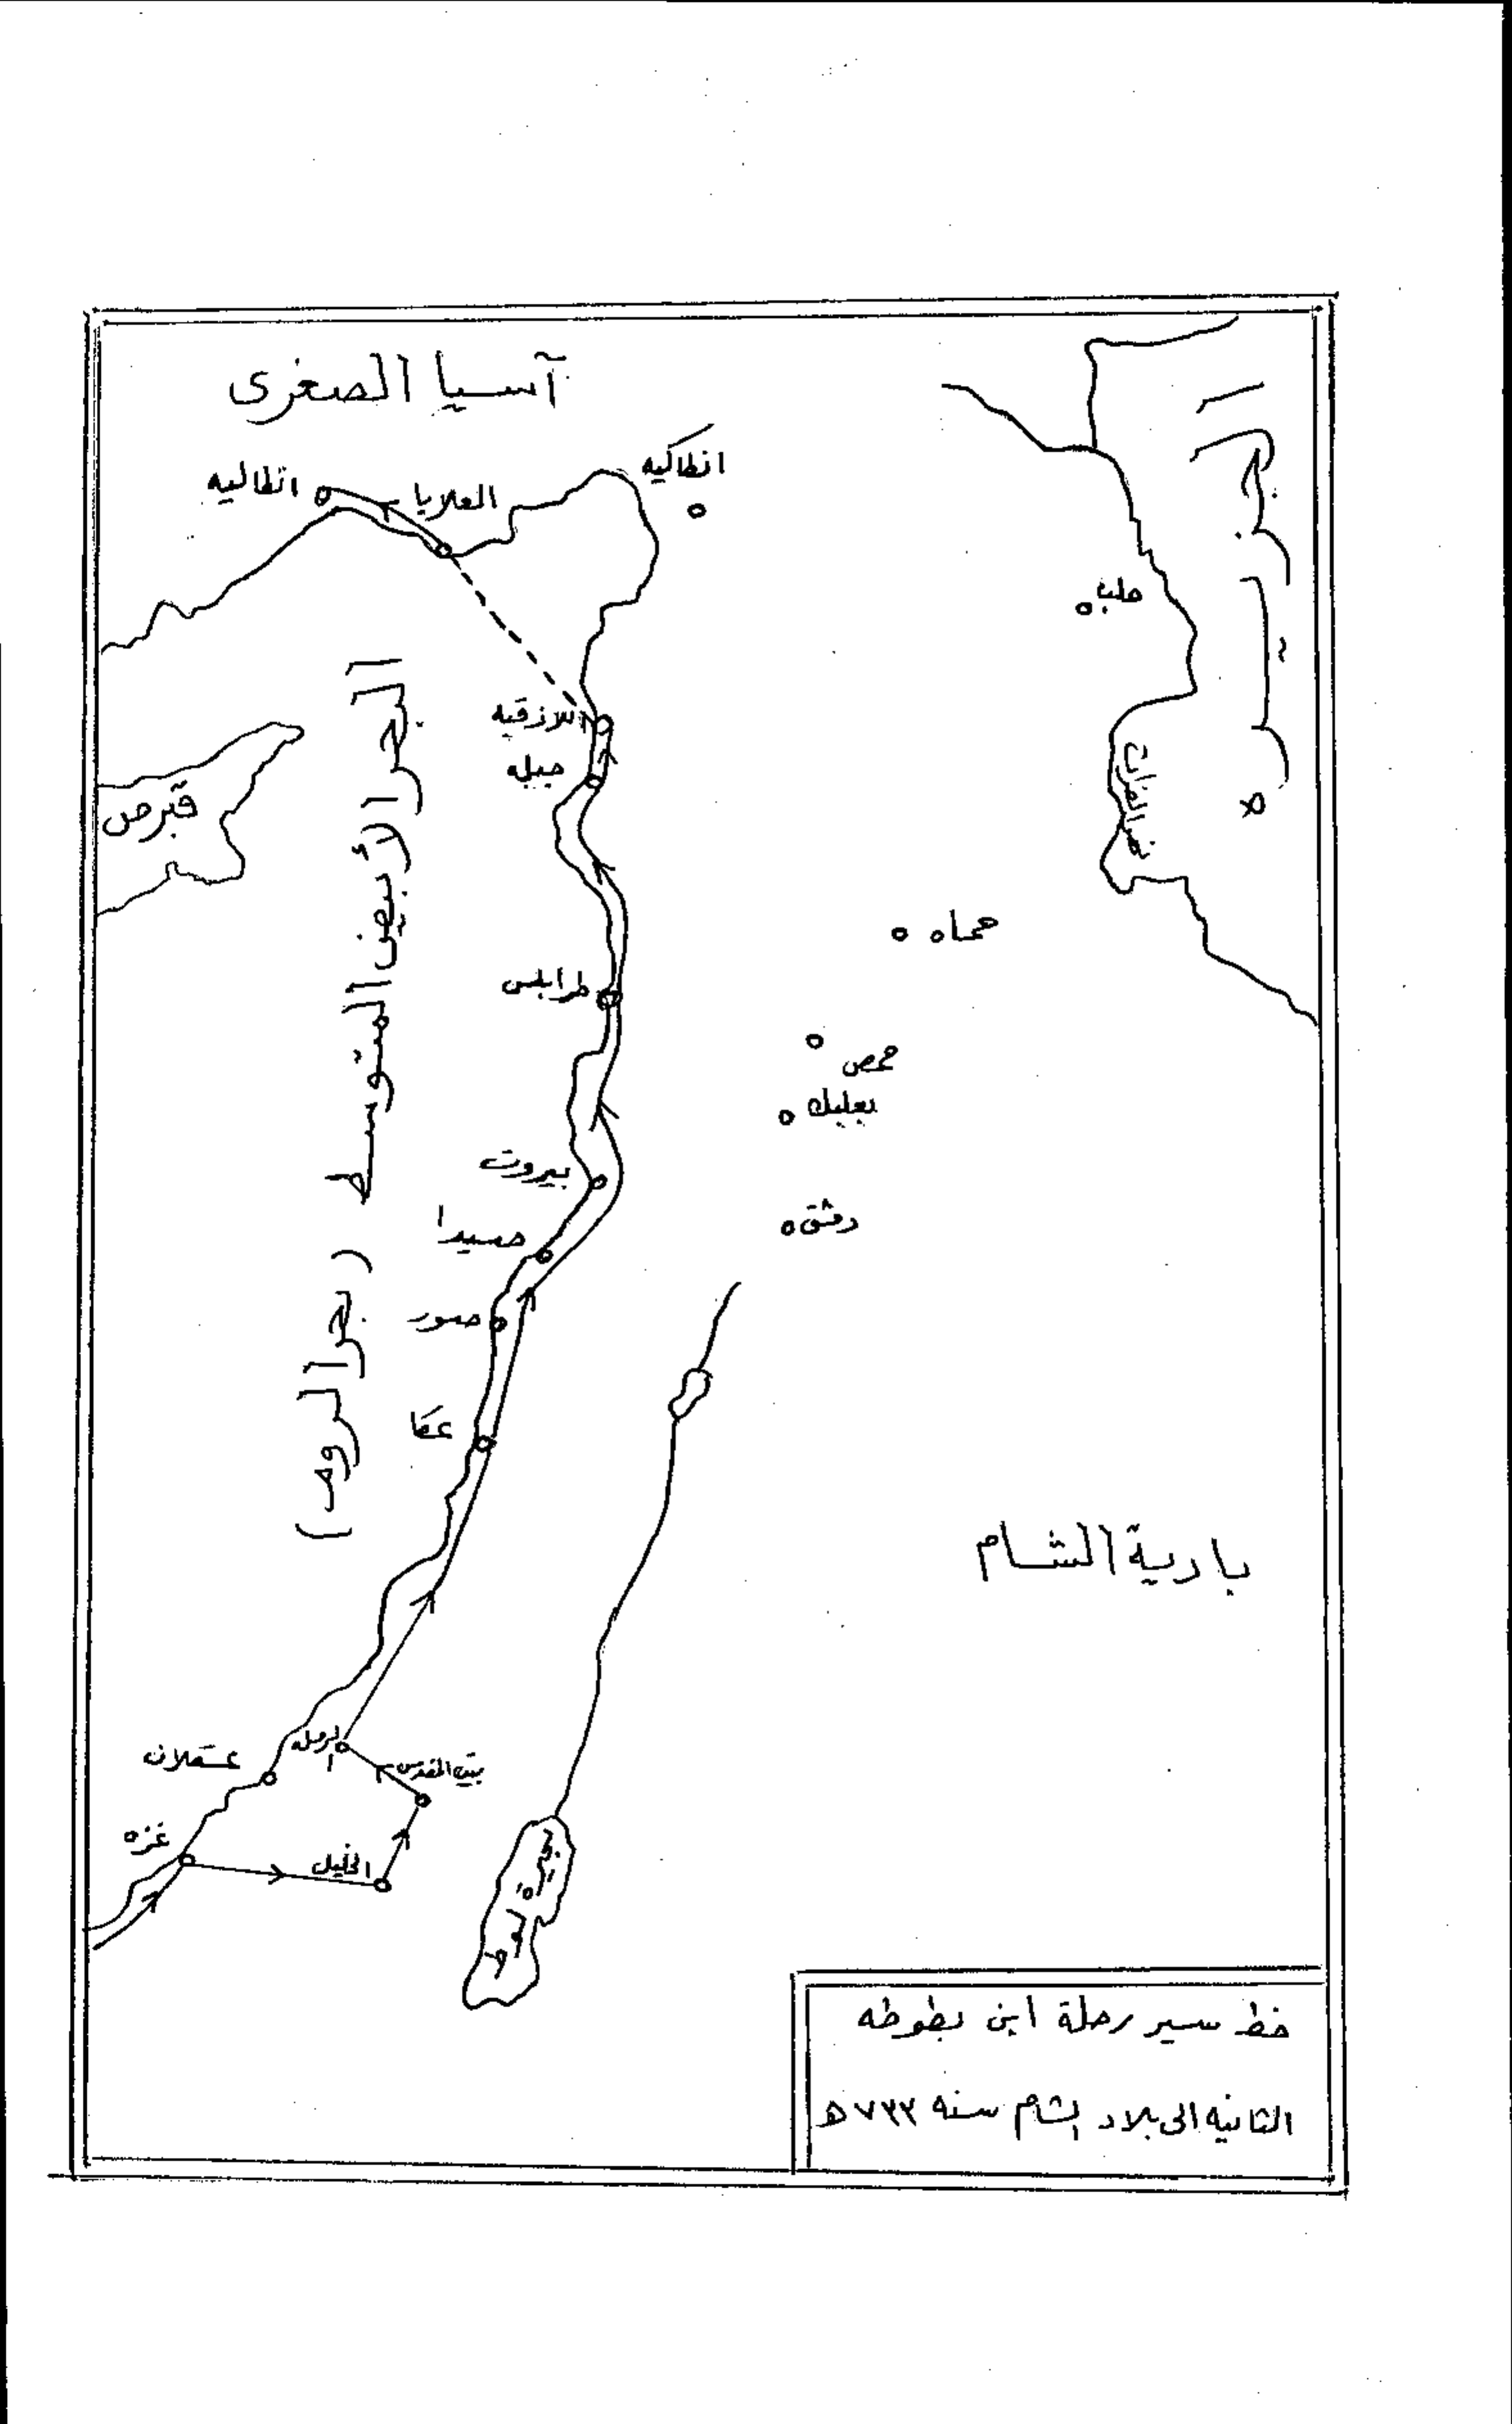 آسيا الصغرى
انطاكيه
انطاليه
العلايا
الجزيرة
حلب
اللاذقيه
جبله
نهر الفرات
قبرص
البحر الأبيض المتوسط (بحر الروم)
حماه
طرابلس
حمص
بعلبك
بيروت
دمشق
صيدا
صور
عكا
بادية الشام
الرمله
عسقلان
بيت المقدس
غزه
الخليل
بحيرة لوط
خط سير رحلة ابن بطوطه
الثانيه الى بلاد الشام سنه ٧٣٣ هـ